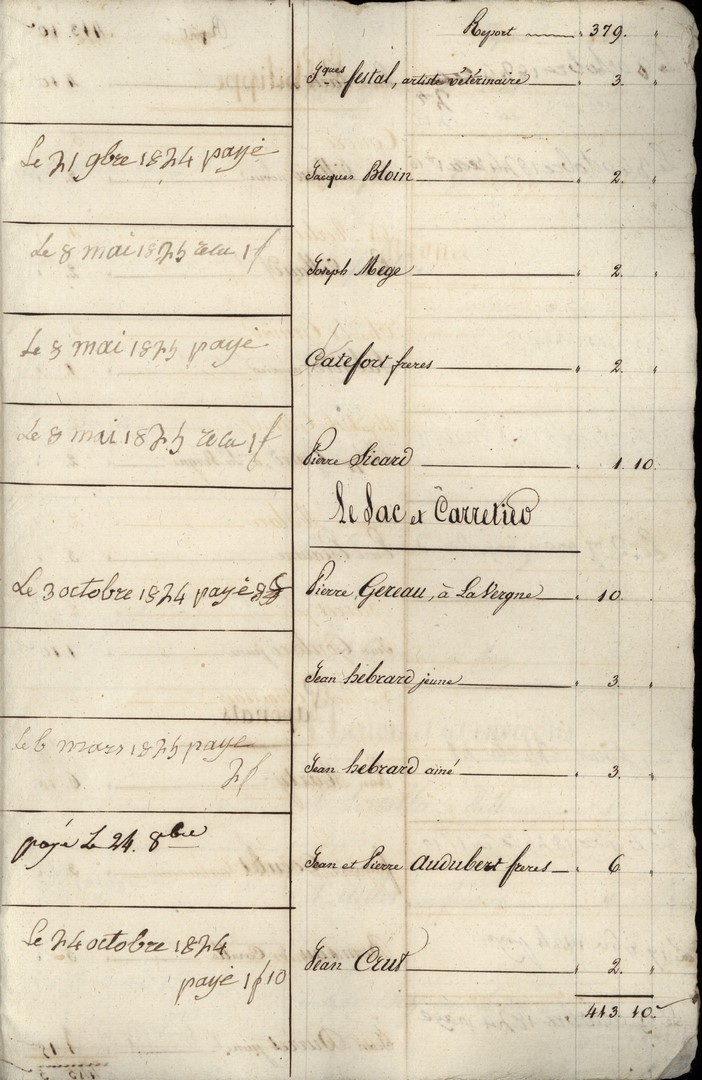 Report 379. "
Jques festal, artiste vétérinaire " 3. "
Le 21 9bre 1824 payé
Jacques Bloin " 2. "
Le 8 mai 1825 recu 1f
Joseph Mege " 2. "
Le 8 mai 1825 payé
Catefort freres " 2. "
Le 8 mai 1825 recu 1f
Pierre Sicard " 1. 10.
Le Sac et Carretieo
Le 3 octobre 1824 payé
Pierre Gereau, à La Vergne " 10.
Jean hébrard jeune " 3. "
Le 6 mars 1825 payé
2f
Jean hebrard ainé " 3. "
payé Le 24. 8bre
Jean et Pierre Audubert freres " 6. "
Le 24 octobre 1824
payé 1f10
Jean Crut " 2. "
413. 10.